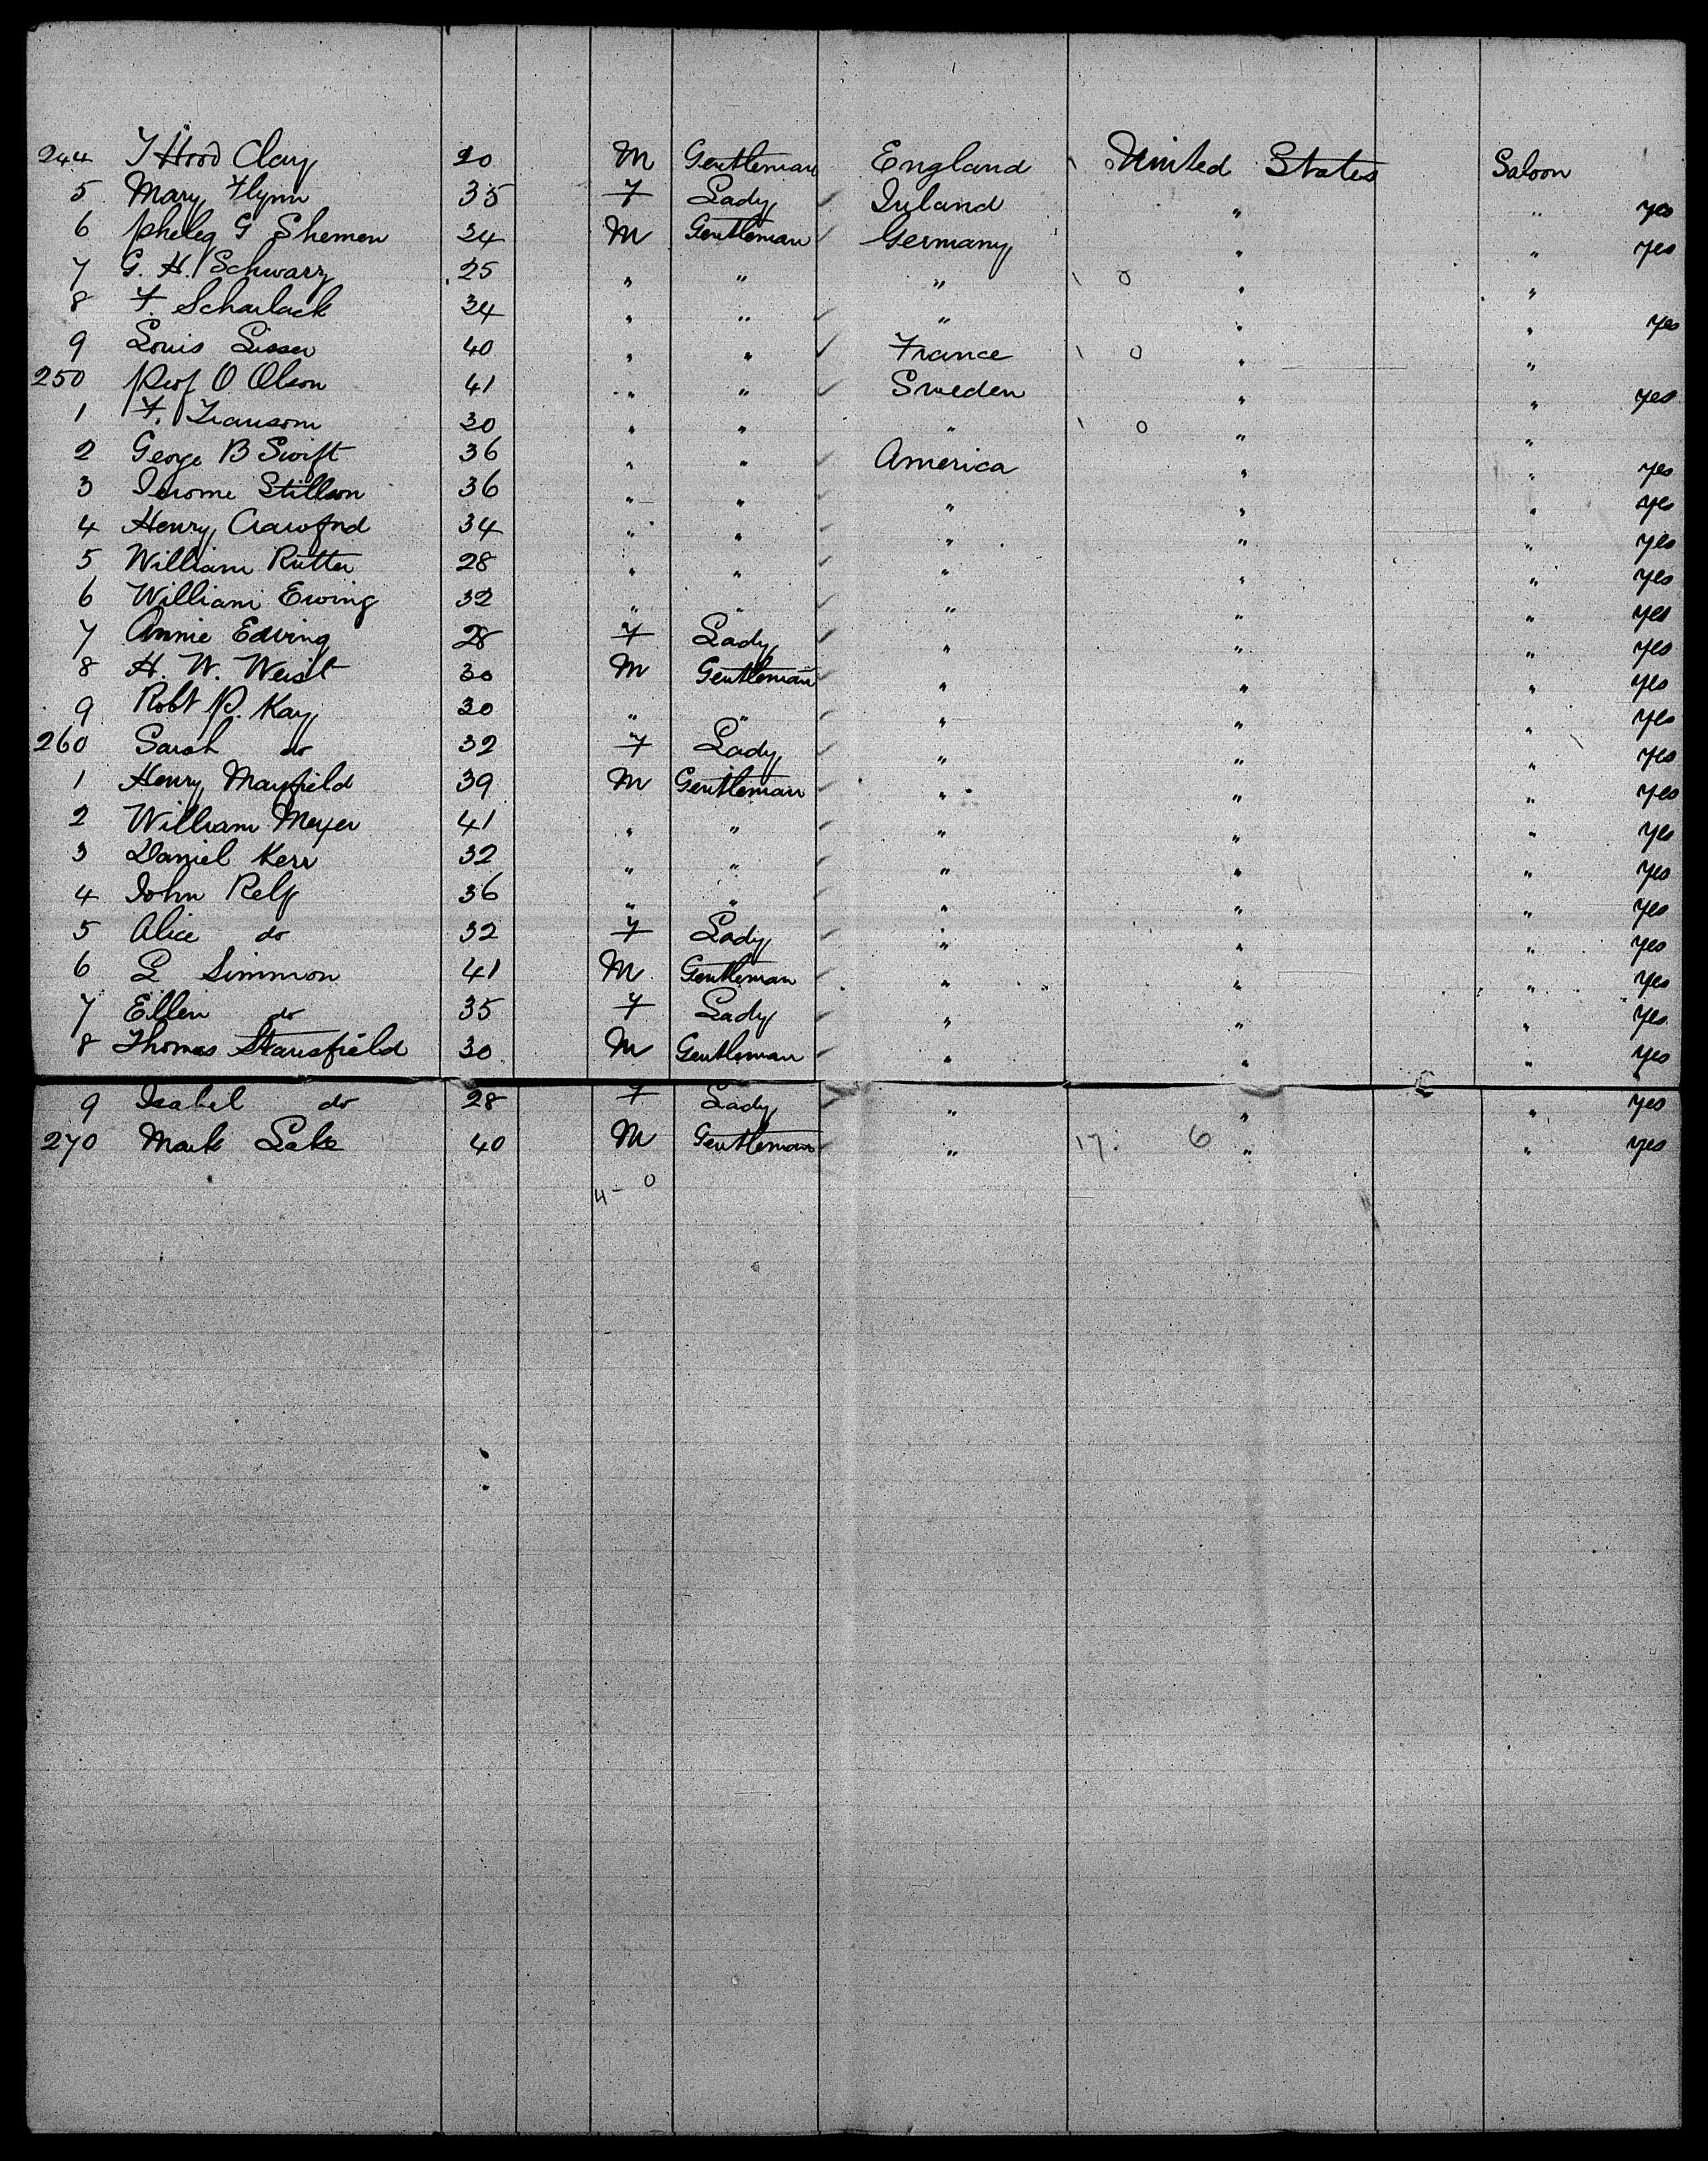 244 T Hood Clay 20 M Gentleman England \ United States Saloon
5 Mary Flynn 35 F Lady Ireland " " yes
6 Pheleg G Shemen 24 M Gentleman Germany " " yes
7 G. H. Schwarz 25 " " " \ 0 " "
8 F. Scharlack 34 " " " " " yes
9 Louis Lisser 40 " " France \ 0 " "
250 Prof O Olson 41 " " Sweden " " yes
1 F. Transom 30 " " " \ 0 " "
2 George B Swift 36 " " America " " yes
3 Jerome Stillson 36 " " " " " yes
4 Henry Crawford 34 " " " " " yes
5 William Rutter 28 " " " " " yes
6 William Ewing 32 " " " " " yes
7 Annie Edwing 28 F Lady " " " yes
8 H. W. Weist 30 M Gentleman " " " yes
9 Robt P. Kay 30 " " " " " yes
260 Sarah do 32 F Lady " " " yes
1 Henry Mayfield 39 M Gentleman " " " yes
2 William Meyer 41 " " " " " yes
3 Daniel Kerr 32 " " " " " yes
4 John Relf 36 " " " " " yes
5 Alice do 32 F Lady " " " yes
6 L Simmon 41 M Gentleman " " " yes
7 Ellen do 35 F Lady " " " yes
8 Thomas Stansfield 30 M Gentleman " " " yes
9 Isabel do 28 F Lady " " " yes
270 Mark Lake 40 M Gentleman " 17. 6 " " yes
4 - 0